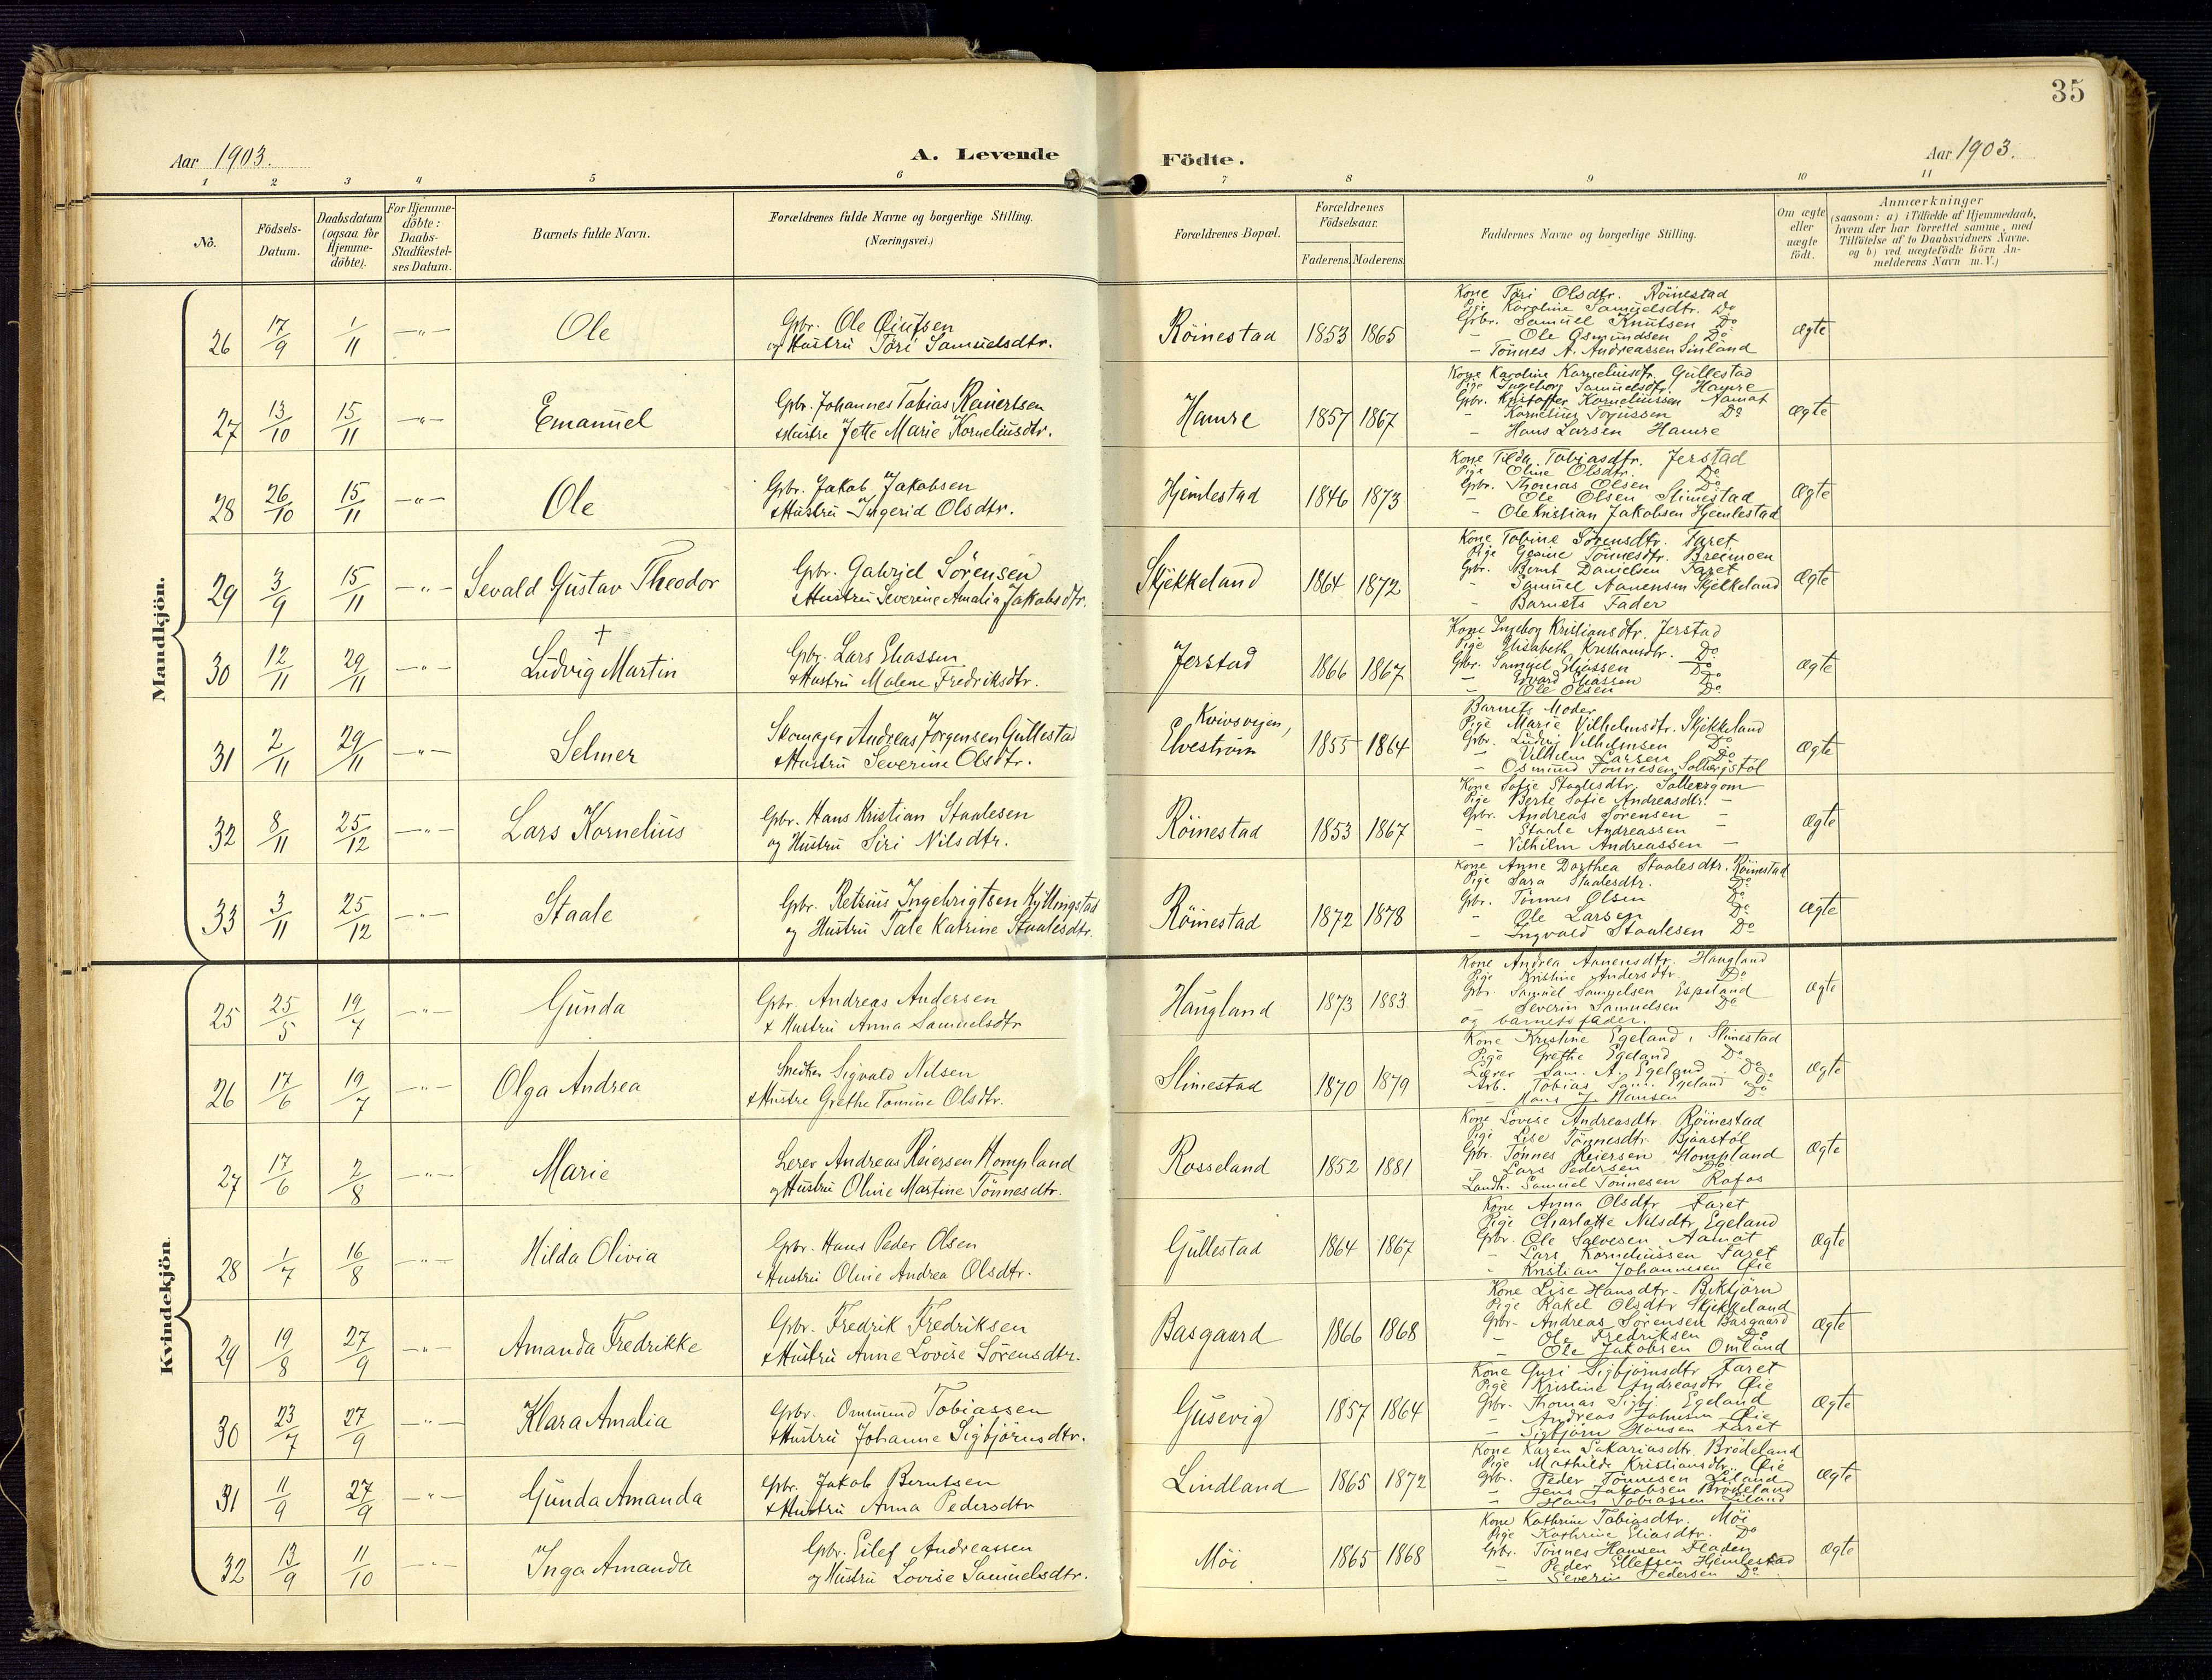 35
Aar 1903.
A. Levende
Födte.
Aar 1903.
1 2 3 4 5 6 7 8 9 10 11
No.
Födsels-
Datum.
Daabsdatum
(ogsaa for
Hjemme-
döbte).
For Hjemme-
döbte:
Daabs-
Stadfæstel-
ses Datum.
Barnets fulde Navn.
Forældrenes fulde Navne og borgerlige Stilling.
(Næringsvei.)
Forældrenes Bopæl.
Forældrenes
Födselsaar.
Faderens. Moderens.
Faddernes Navne og borgerlige Stilling.
Om ægte
eller
uægte
födt.
Anmærkninger
(saasom: a) i Tilfælde af Hjemmedaab,
hvem der har forrettet samme, med
Tilföielse af to Daabsvidners Navne.
og b) ved uægtefödte Börn An-
melderens Navn m. V.)
Mandkjön.
26 17/9 1/11 —"— Ole
Gbr. Ole
og Hustru Töri Samuelsdtr.
Röinestad 1853 1865
Kone Töri Olsdtr. Röinestad
Pige Karoline Samuelsdtr. Do
Gbr. Samuel Knutsen Do
— Ole Osmundsen Do
— Tönnes A. Andreassen Sinland
ægte
27 13/10 15/11 —"— Emanuel
Gbr. Johannes Tobias Reinertsen
& Hustru Jette Marie Korneliusdtr.
Hamre 1857 1867
Kone Karoline Korneliusdtr. Gullestad
Pige Ingeborg Samuelsdtr. Hamre
Gbr. Kristoffer Korneliussen Aamot
" Kornelius Do
— Hans Larsen Hamre
ægte
28 26/10 15/11 —"— Ole
Gbr. Jakob Jakobsen
& Hustru Ingerid Olsdtr.
Hjemlestad 1846 1873
Kone Tilda Tobiasdtr. Jerstad
Pige Oline Olsdtr. Do
Gbr. Thomas Olsen Do
— Ole Olsen Slimestad
— Ole Kristian Jakobsen Hjemlestad
ægte
29 3/9 15/11 —"— Sevald Gustav Theodor
Gbr. Gabriel Sörensen
& Hustru Severine Amalia Jakobsdtr.
Skjekkeland 1864 1872
Kone Tobine Sörensdtr. Faret
Pige Gesine Tönnesdtr. Breimoen
Gbr. Bernt Danielsen Faret
— Samuel Aanensen Skjekkeland
— Barnets Fader
ægte
30 12/11 29/11 —"— + Ludvig Martin
Gbr. Lars Eliassen
& Hustru Malene Fredriksdtr.
Jerstad 1866 1867
Kone Ingebog Kristiansdtr. Jerstad
Pige Elisabeth Kristiansdtr. Do
Gbr. Samuel Eliassen Do
— Edvard Eliassen Do
— Ole Olsen Do
ægte
31 2/11 29/11 —"— Selmer
Skomager Andreas Jörgensen Gullestad
& Hustru Severine Olsdtr.
Kvivsvejen,
Elveström 1855 1864
Barnets Moder
Pige Marie Vilhelmsdtr. Skjekkeland
Gbr. Ludvig Vilhelmsen Do
— Vilhelm Larsen Do
— Osmund Tönnesen
ægte
32 8/11 25/12 —"— Lars Kornelius
Gbr. Hans Kristian Staalesen
og Hustru Siri Nilsdtr.
Röinestad 1853 1867
Kone Sofie Staalesdtr.
Pige Berte Sofie Andreasdtr. —
Gbr. Andreas Sörensen —
— Staale Andreassen —
— Vilhelm Andreassen —
ægte
33 3/11 25/12 —"— Staale
Gbr. Retsius Ingebrigtsen Kyllingstad
og Hustru Tale Katrine Staalesdtr.
Röinestad 1872 1878
Kone Anne Dorthea Staalesdtr. Röinestad
Pige Sara Staalesdtr. Do
Gbr. Tönnes Olsen Do
" Ole Larsen Do
— Ingvald Staalesen Do
ægte
Kvindekjön.
25 25/5 19/7 —"— Gunda
Gbr. Andreas Andersen
& Hustru Anna Samuelsdtr
Haugland 1873 1883
Kone Andrea Aanensdtr. Haugland
Pige Kristine Andersdtr. Do
Gbr. Samuel Samuelsen Espeland
— Severin Samuelsen Do
og barnets fader.
ægte
26 17/6 19/7 —"— Olga Andrea
Snedker Sigvald Nilsen
& Hustru Grethe Tomine Olsdtr.
Slimestad 1870 1879
Kone Kristine Egeland, Slimestad
Pige Grethe Egeland Do
Lærer Sam. A. Egeland Do
Arb. Tobias Sam. Egeland Do
— Hans J. Hansen Do
ægte
27 17/6 2/8 —"— Marie
Lærer Andreas Reiersen Hompland
og Hustru Oline Martine Tönnesdtr.
Rosseland 1852 1881
Kone Lovise Andreasdtr. Röinestad
Pige Lise Tönnesdtr. Bjaastöl
Gbr. Tönnes Reiersen Hompland
— Lars Pedersen Do
Landh. Samuel Tönnesen Rafos
ægte
28 1/7 16/8 —"— Hilda Olivia
Gbr. Hans Peder Olsen
& Hustru Oline Andrea Olsdtr.
Gullestad 1864 1867
Kone Anna Olsdtr Faret
Pige Charlotte Nilsdtr. Egeland
Gbr. Ole Salvesen Aamot
" Lars Korneliussen Faret
" Kristian Johannesen Øie
ægte
29 19/8 27/9 —"— Amanda Fredrikke
Gbr. Fredrik Fredriksen
& Hustru Anne Lovise Sörensdtr.
Basgaard 1866 1868
Kone Lise Hansdtr. Birktjörn
Pige Rakel Olsdtr Skjekkeland
Gbr. Andreas Sörensen Basgaard
— Ole Fredriksen Do
— Ole Jakobsen Omland
ægte
30 23/7 27/9 —"— Klara Amalia
Gbr. Ommund Tobiassen
& Hustru Johanne Sigbjörnsdtr.
Gusevig 1857 1864
Kone Guri Sigbjörnsdtr Faret
Pige Kristine Andreasdtr Øie
Gbr. Thomas Sigbj. Egeland
— Andreas Johnsen Øie
— Sigbjörn Hansen Faret
ægte
31 11/9 27/9 —"— Gunda Amanda
Gbr. Jakob Berntsen
& Hustru Anna Pedersdtr
Lindland 1865 1872
Kone Karen Sakariasdtr. Brödeland
Pige Mathilde Kristiansdtr. Øie
Gbr. Peder Tönnesen Liland
" Jens Jakobsen Brödeland
" Hans Tobiassen Liland
ægte
32 13/9 11/10 —"— Inga Amanda
Gbr. Eilef Andreassen
og Hustru Lovise Samuelsdtr.
Möi 1865 1868
Kone Kathrine Tobiasdtr. Möi
Pige Kathrine Eliasdtr. Do
Gbr. Tönnes Hansen Fladen
— Peder Ellefsen Hjemlestad
— Severin Pedersen Do
ægte